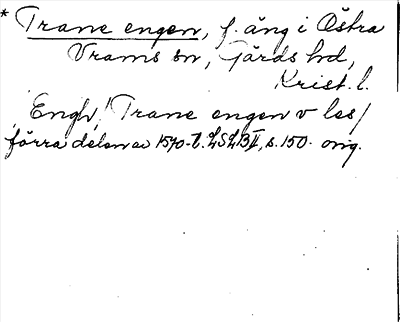 * Trane engen, f. äng i Östra
Vrams sn, Gärds hd,
Krist. l.
Engh, "Trane engen v les/
förra delen av 1570-t. LSLB II, s. 150. orig.